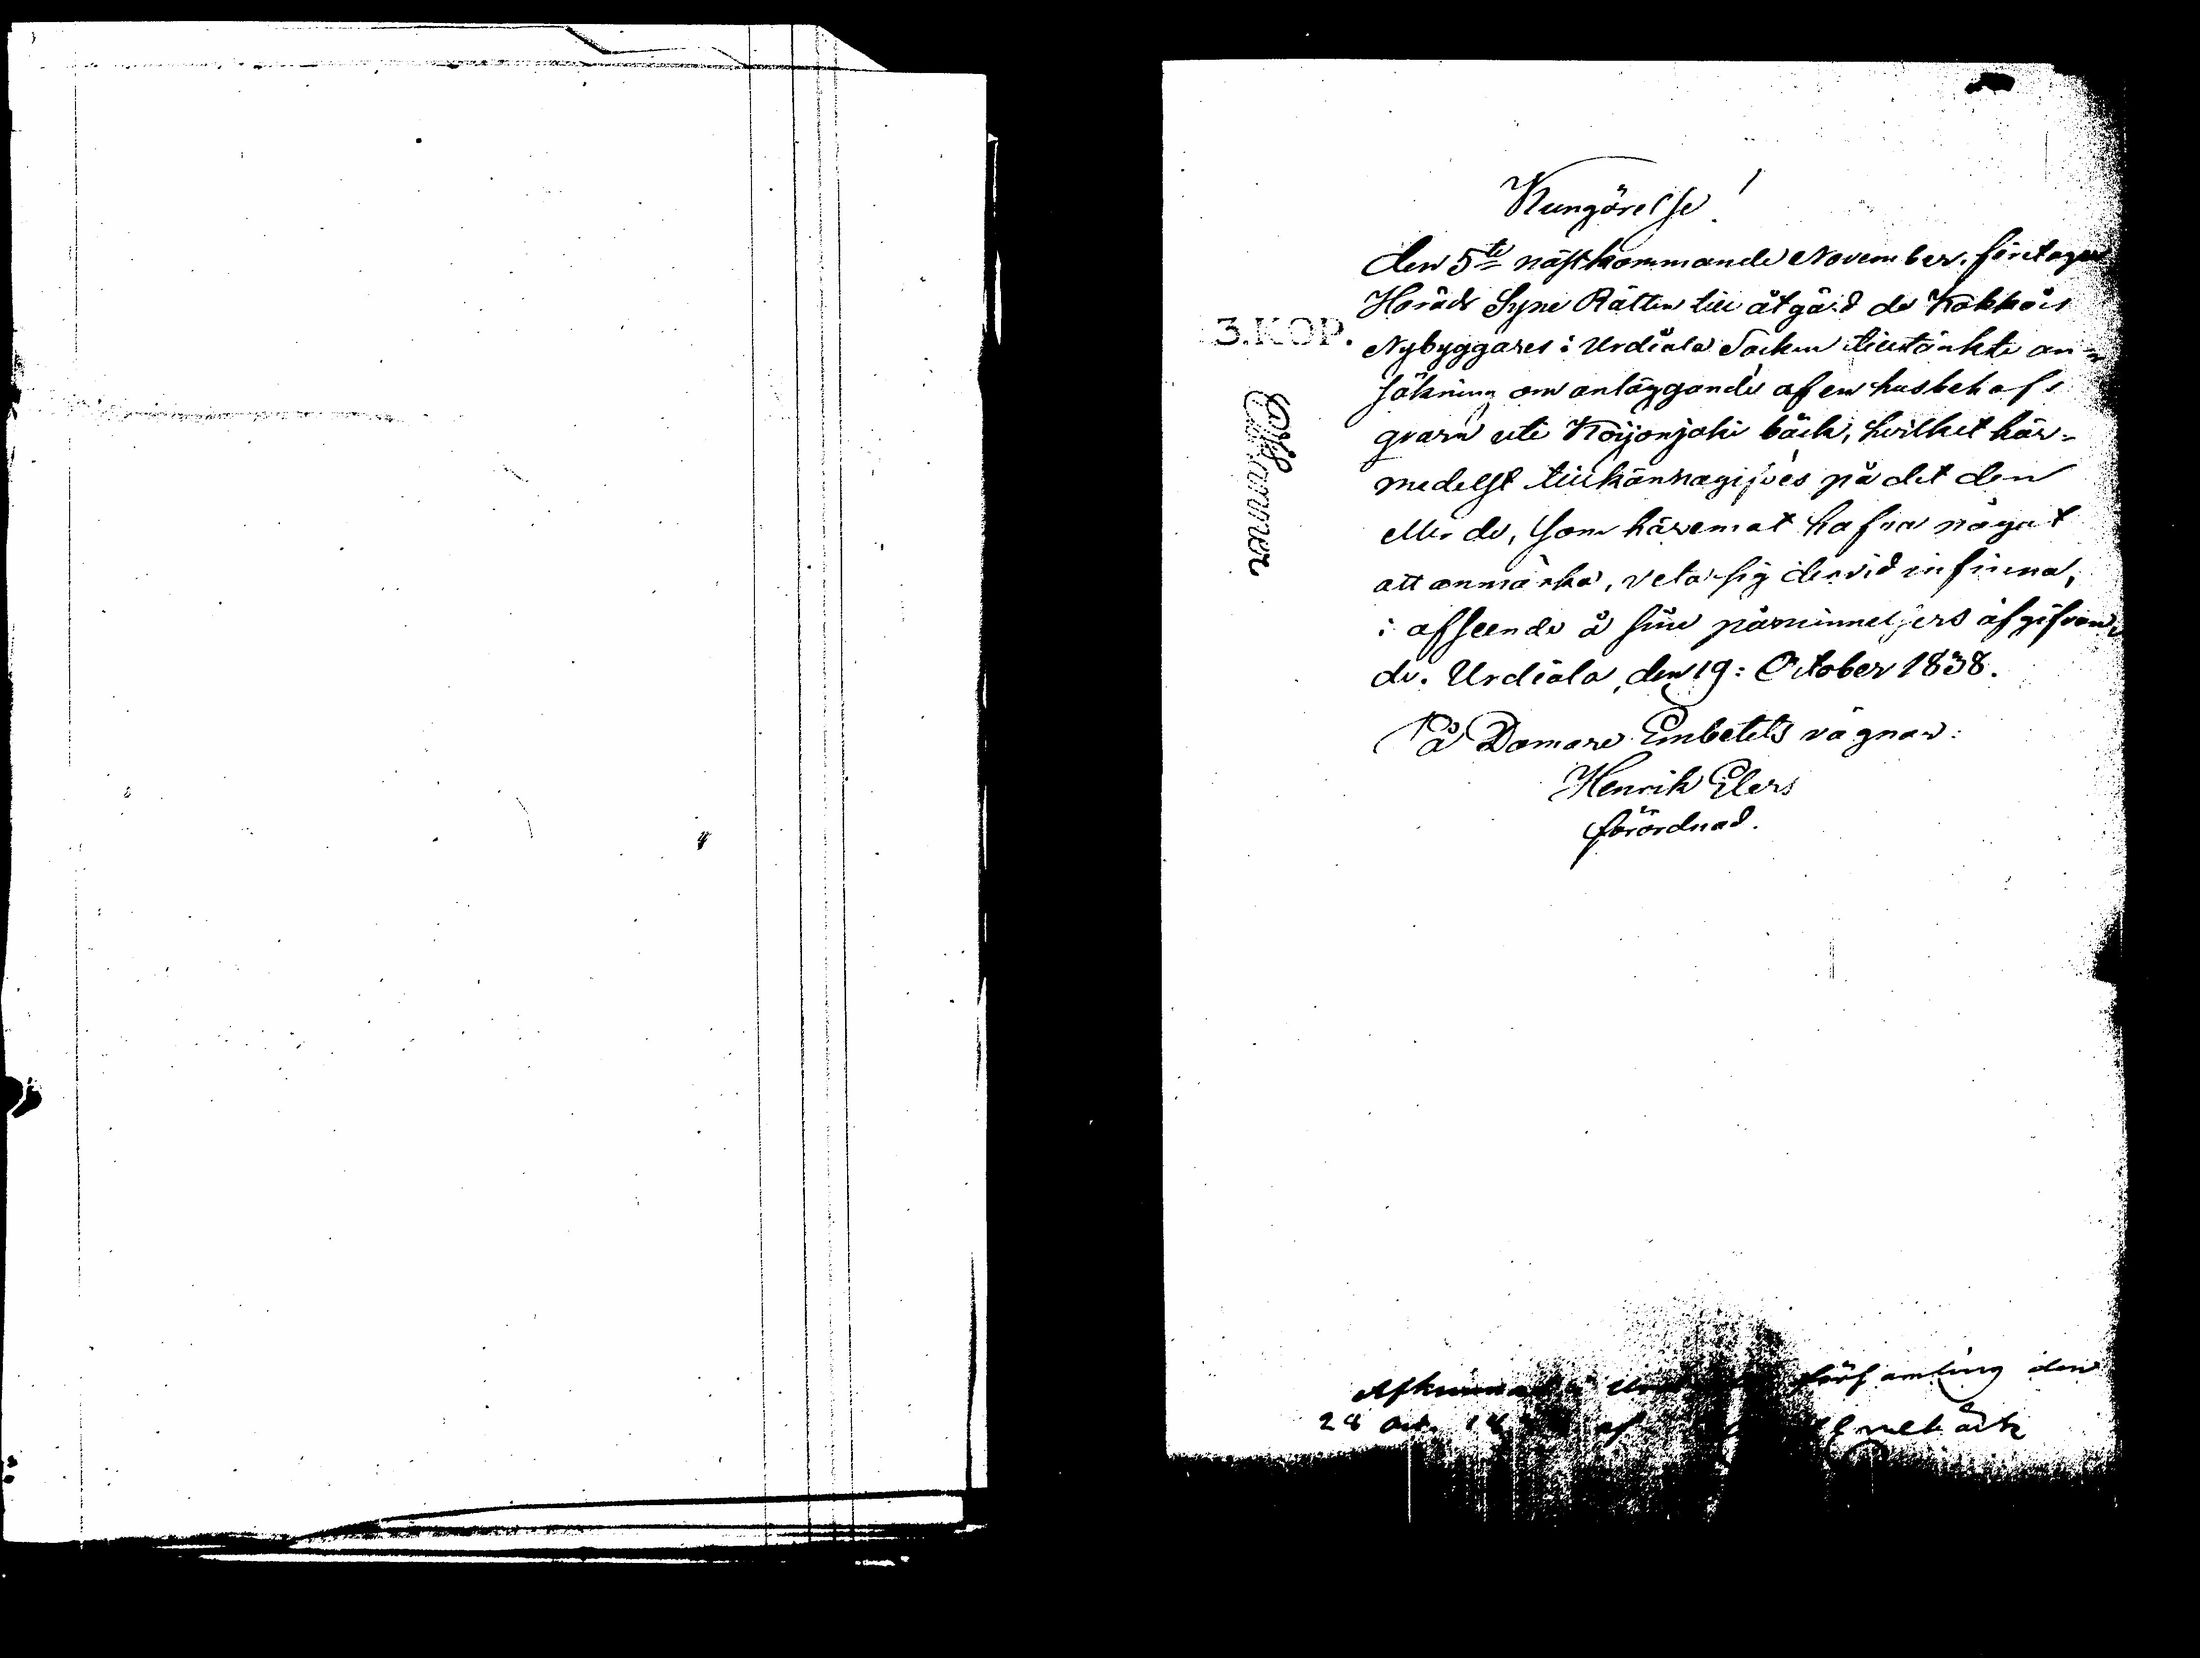 Kungörelse!
den 5te nästkommande November, företager
Härads Syne Rätten till åtgärd de Kokkois
3.KOP.
Nybyggares i Urdiala Socken tilltänkte an-
sökning om anläggande af en husbehofs
qvarn uti Koijonjoki bäck, hvilket här-
medelst tillkännagifves på det den
eller de, som häremot hafva något
att anmärka, veta sig dervid infinna,
i afseende å sine påminnelsers afgifvan-
de. Urdiala, den 19: October 1838.
På Domare Embetets vägnar:
Henrik Elers
förordnad.
församling den
28 Oct. af